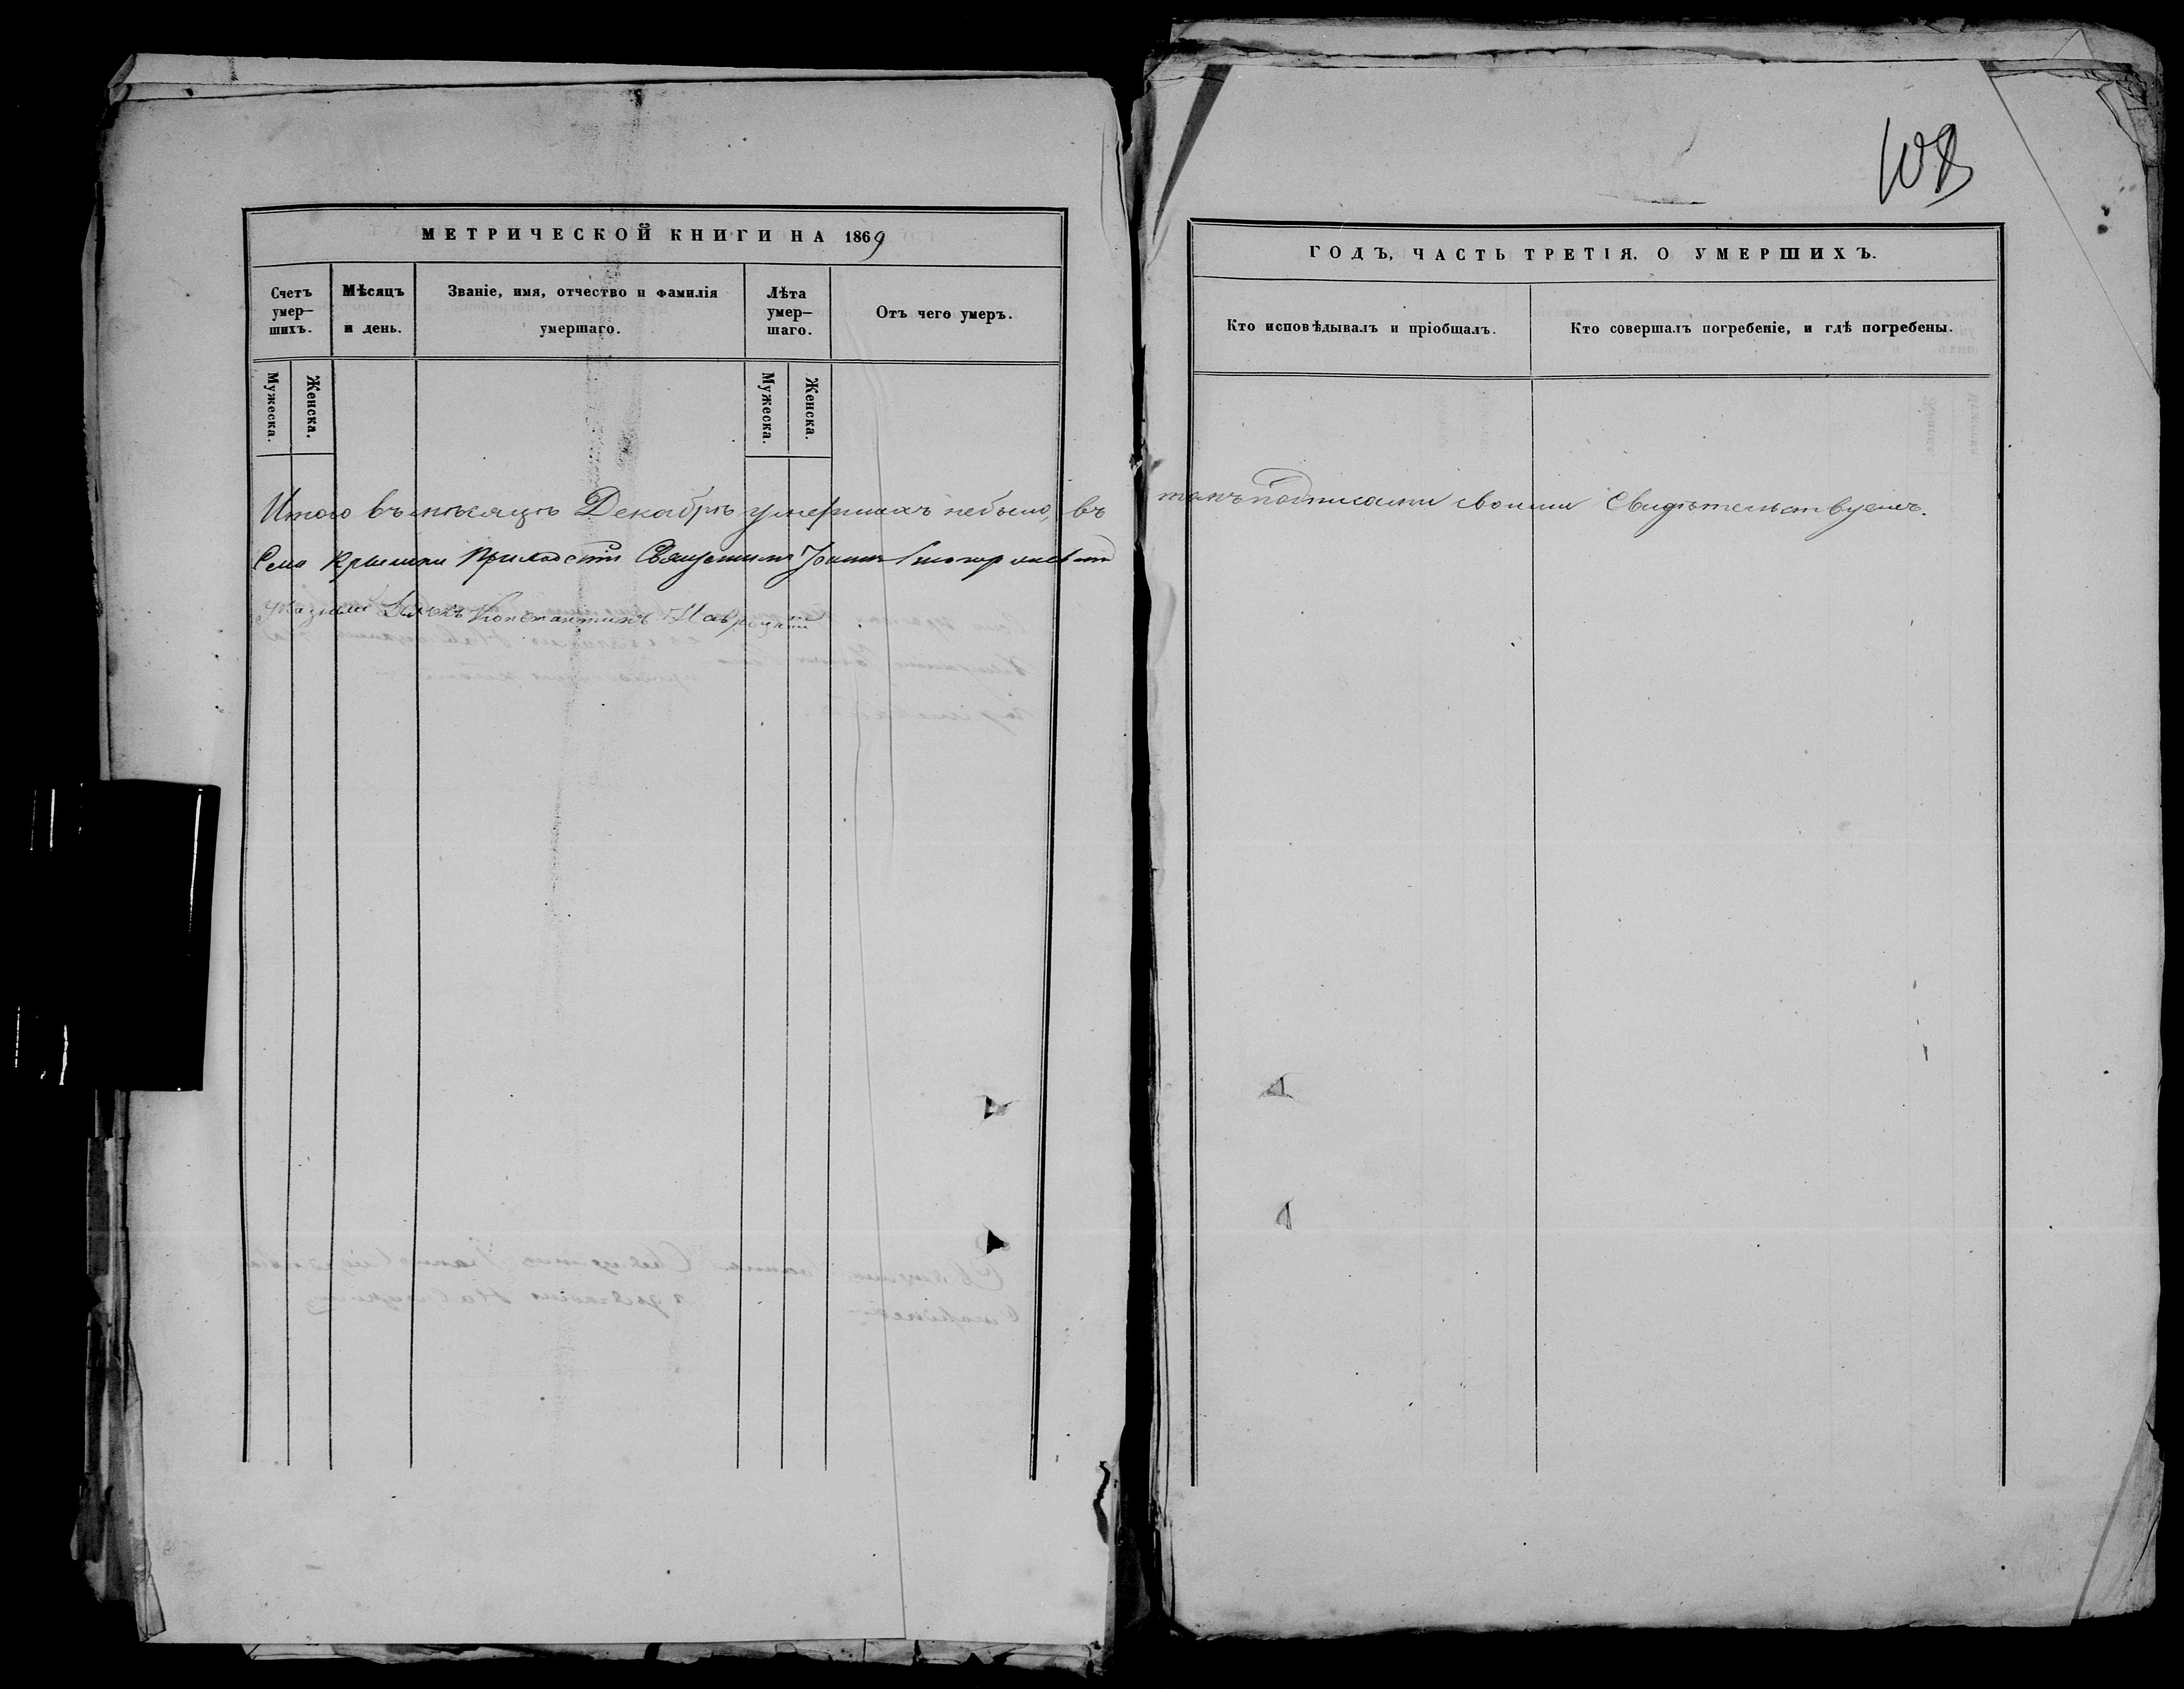 108
МЕТРИЧЕСКОЙ КНИГИ НА 1869
ГОДЪ, ЧАСТЬ ТРЕТІЯ, О УМЕРШИХЪ.
Счетъ умер-
шихъ.
Мѣсяцъ
и день.
Званіе, имя, отчество и фамилія
умершаго.
Лѣта
умер-
шаго.
Отъ чего умеръ.
Кто исповѣдывалъ и пріобщалъ.
Кто совершалъ погребеніе, и гдѣ погребены.
Мужеска.
Женска.
Мужеска.
Женска.
Итого въ мѣсяцѣ Декабрѣ умершихъ небыло, въ
томъ подписами своими Свидѣтельствуемъ.
Села Священникъ Іоаннъ
Константинъ Навроцкій